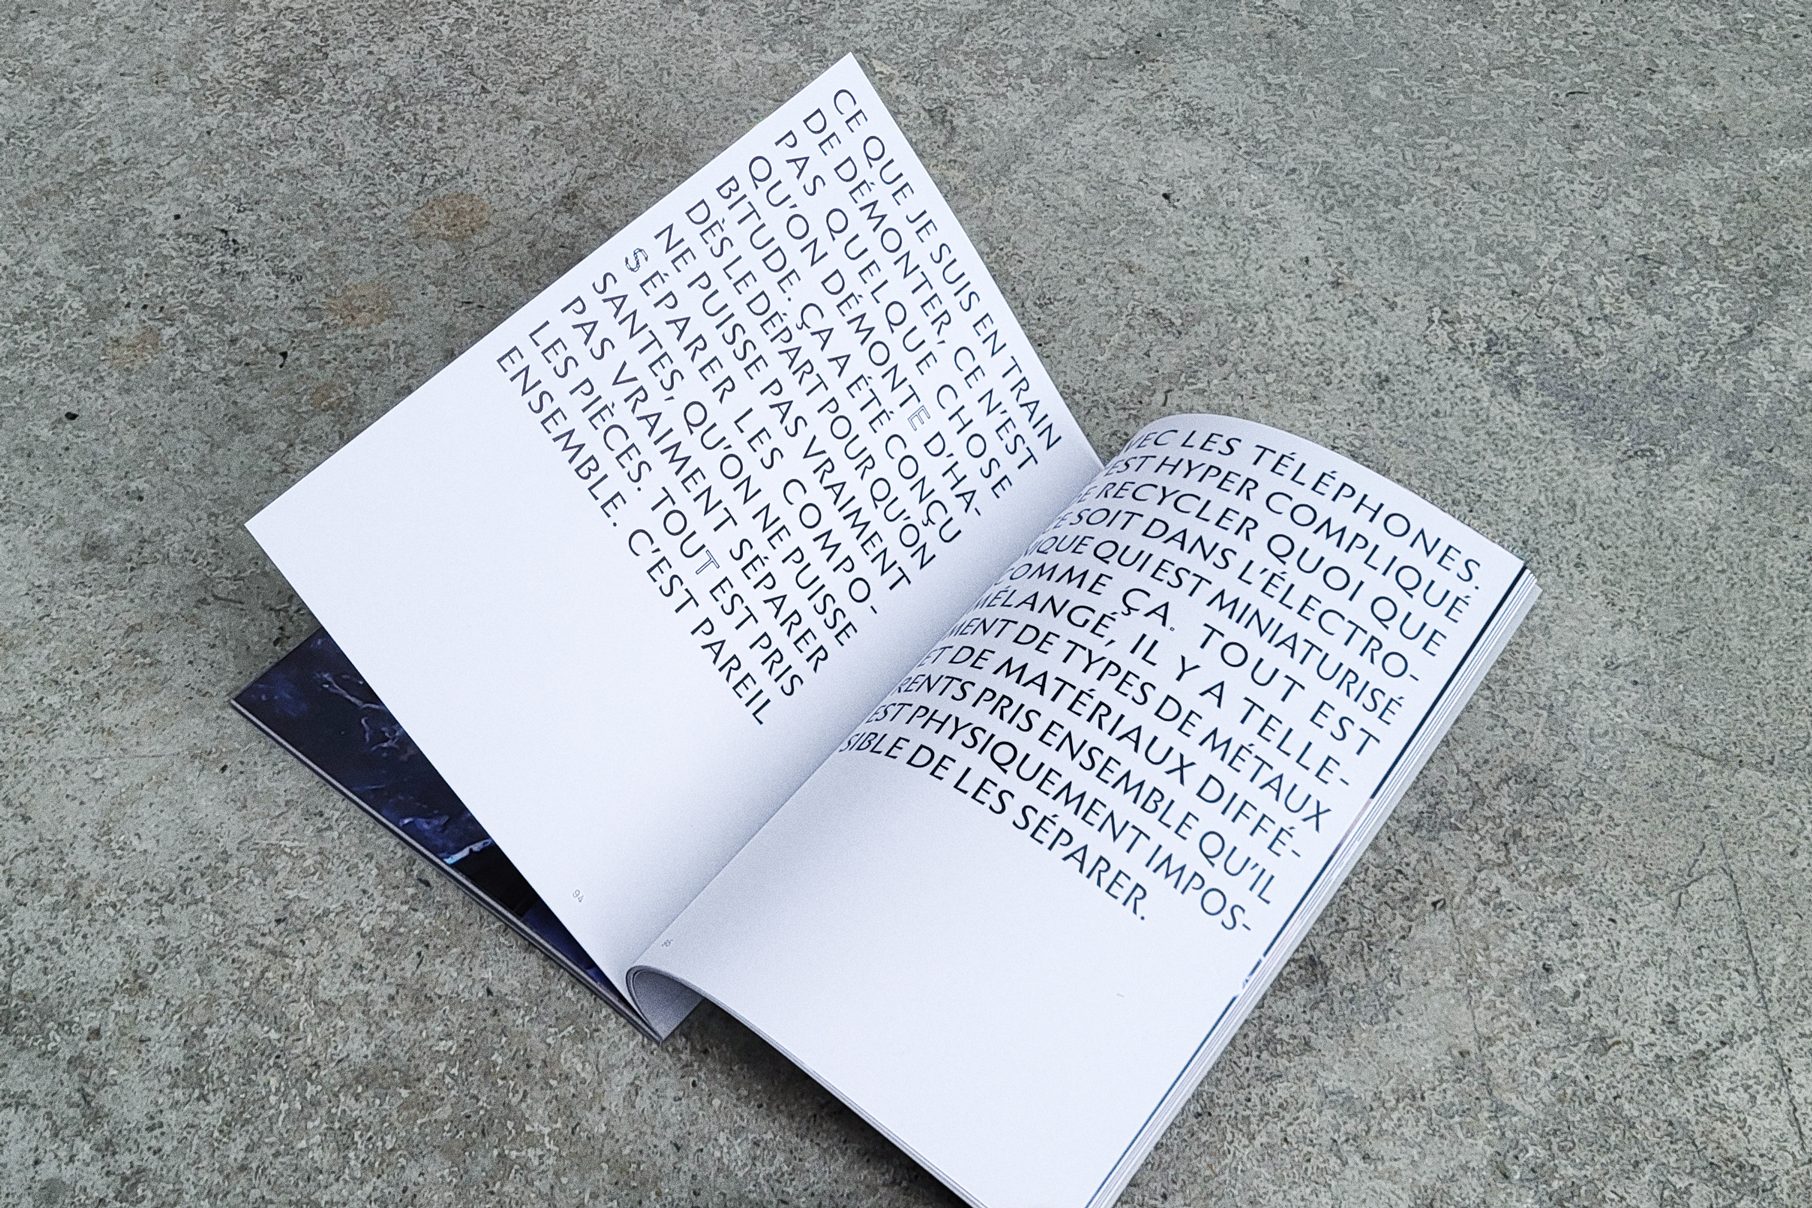 CE QUE JE SUIS EN TRAIN
DE DÉMONTER, CE N'EST
PAS QUELQUE CHOSE
QU'ON DÉMONTE D'HA-
BITUDE. ÇA A ÉTÉ CONÇU
DÈS LE DÉPART POUR QU'ON
NE PUISSE PAS VRAIMENT
SÉPARER LES COMPO-
SANTES, QU'ON NE PUISSE
PAS VRAIMENT SÉPARER
LES PIÈCES. TOUT EST PRIS
ENSEMBLE. C'EST PAREIL
94
AVEC LES TÉLÉPHONES.
C'EST HYPER COMPLIQUÉ
DE RECYCLER QUOI QUE
CE SOIT DANS L'ÉLECTRO-
NIQUE QUI EST MINIATURISÉ
COMME ÇA. TOUT EST
MÉLANGÉ, IL Y A TELLE-
MENT DE TYPES DE MÉTAUX
ET DE MATÉRIAUX DIFFÉ-
RENTS PRIS ENSEMBLE QU'IL
EST PHYSIQUEMENT IMPOS-
SIBLE DE LES SÉPARER.
95